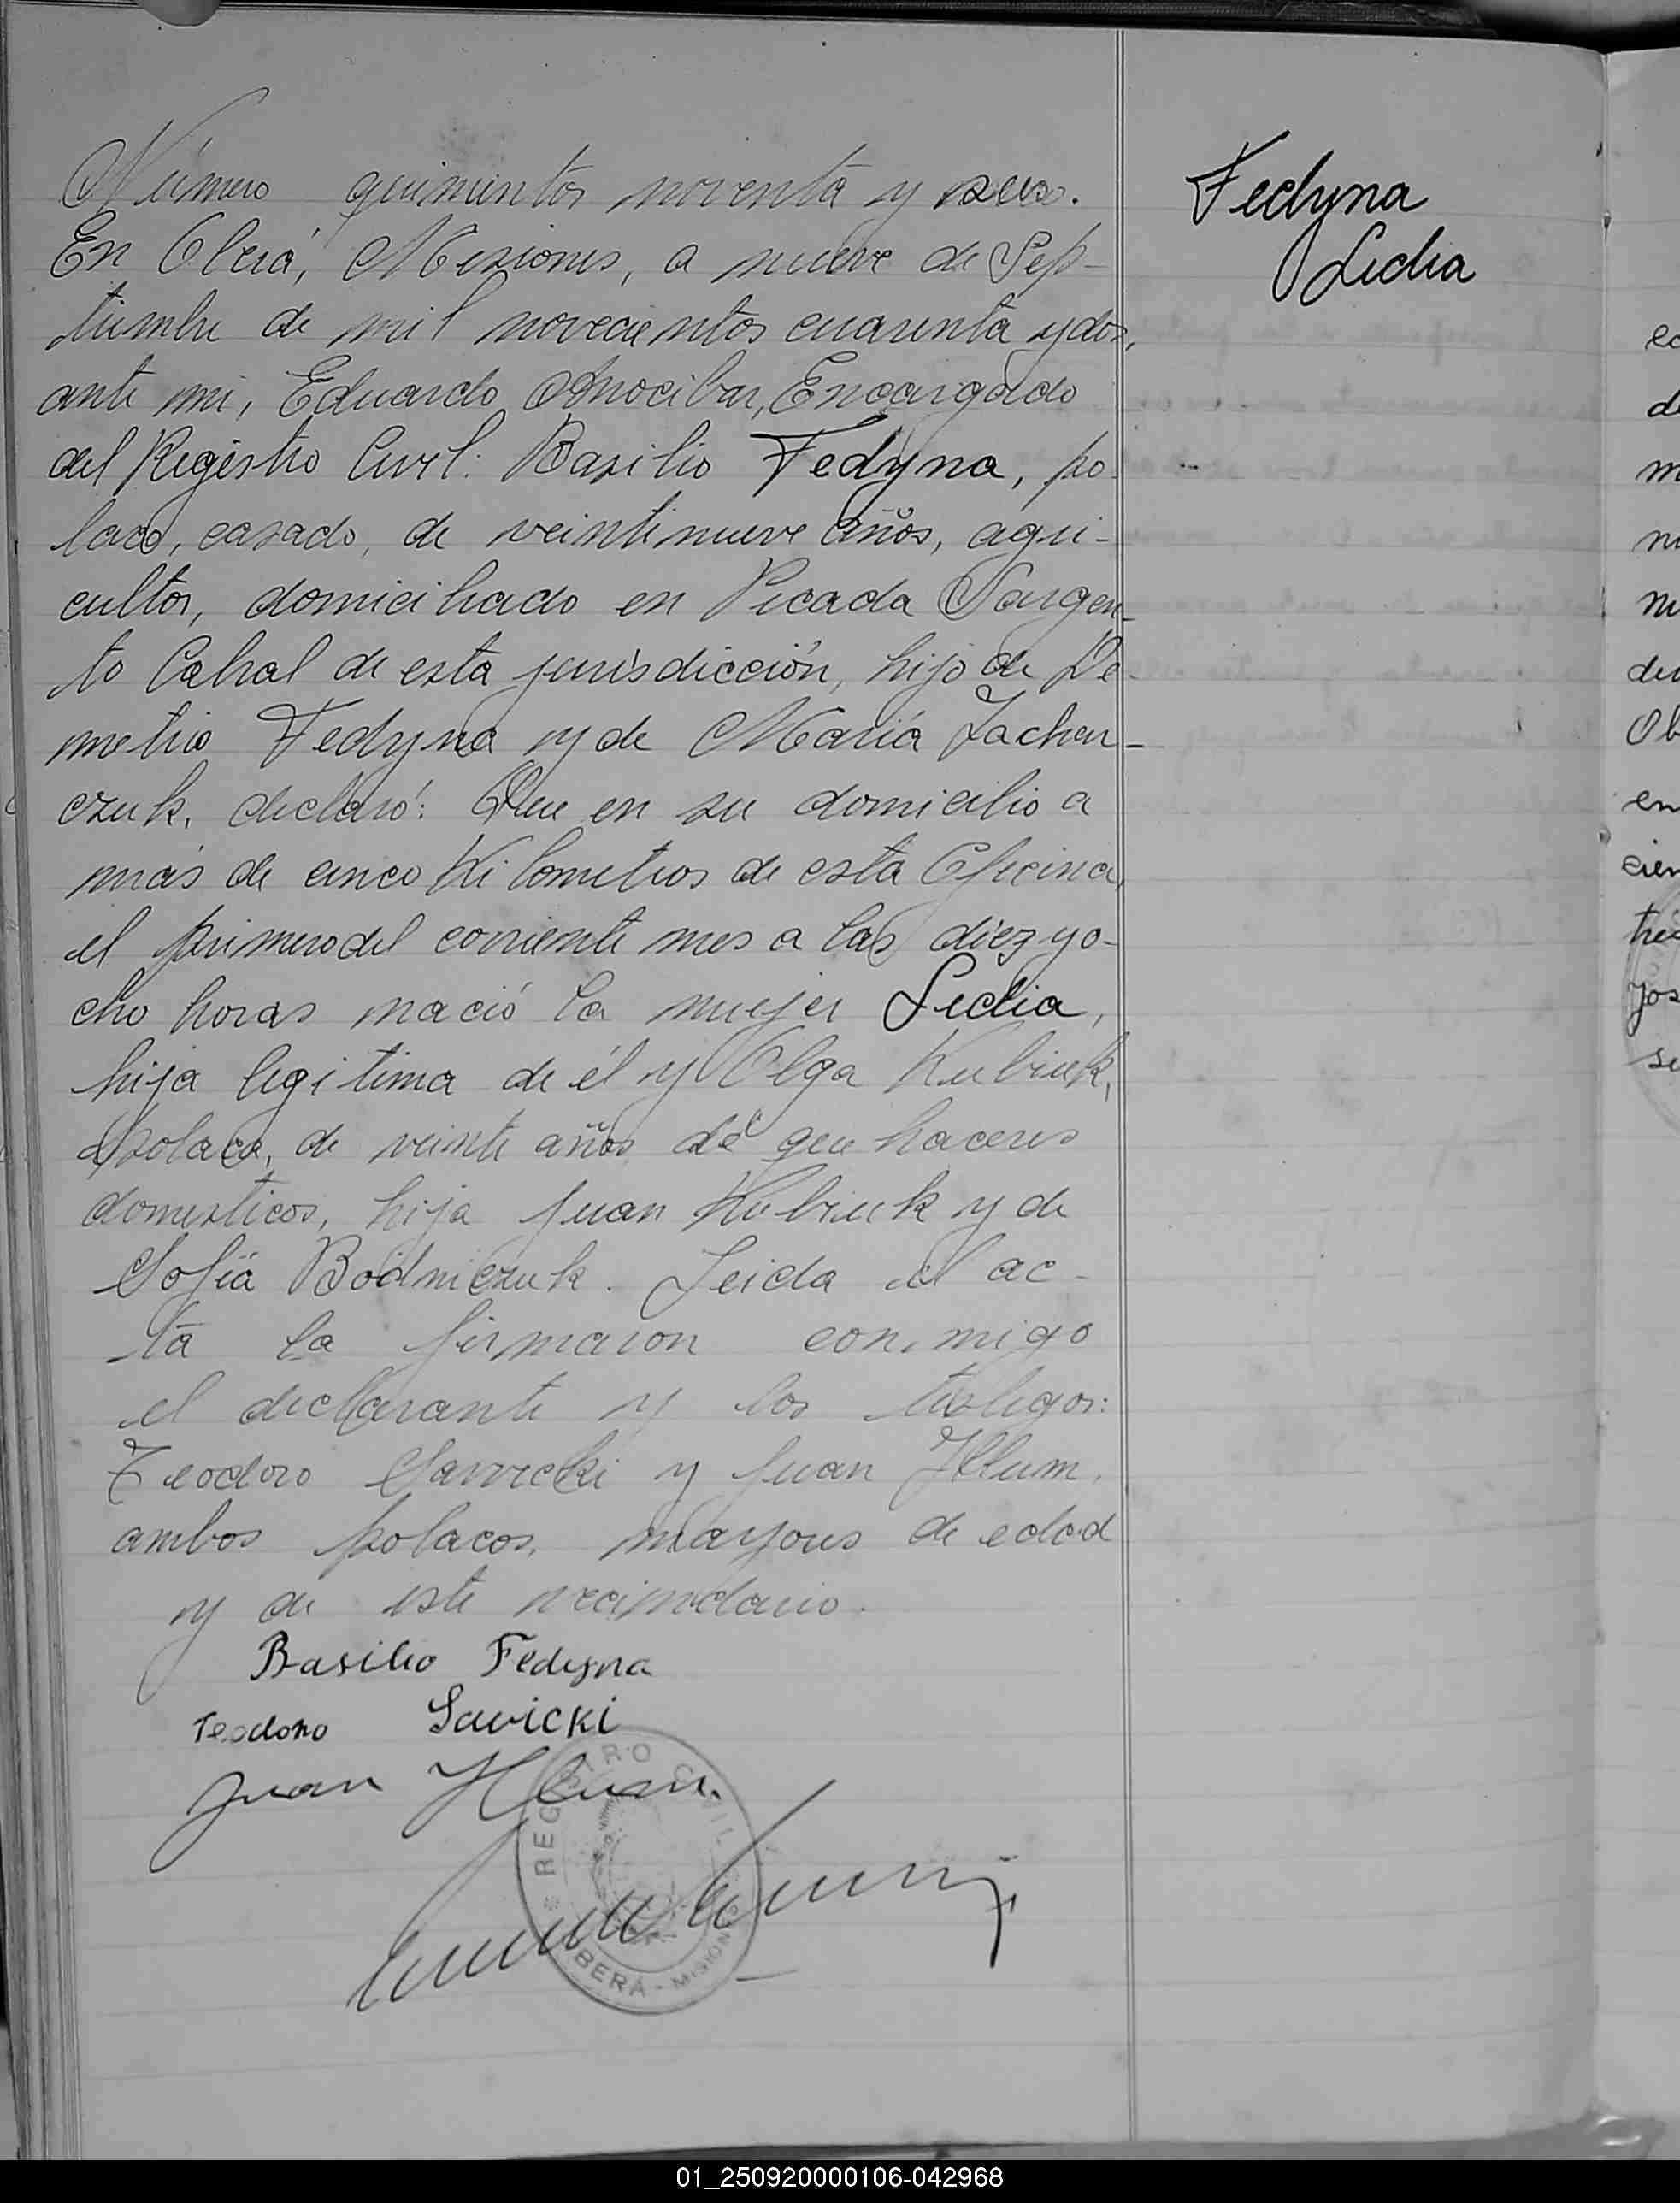 Número quinientos noventa y seis.
Fedyna
Lidia
En Oberá, Misiones, a nueve de Sep-
tiembre de mil novecientos cuarenta y dos,
ante mi, Eduardo Amocibar, Encargado
del Registro Civil: Basilio Fedyna, po-
laco, casado, de veintinueve años, agri-
cultor, domiciliado en Picada Sargen-
to Cabral de esta jurisdicción, hijo de De-
metrio Fedyna y de María Zachar-
czuk, declaró: Que en su domicilio a
más de cinco Kilometros de esta Oficina,
el primero del corriente mes a las diez y o-
cho horas nació la mujer Lidia,
hija legitima de él y Olga Kubiuk,
polaca, de veinte años de que haceres
domesticos, hija Juan Kubiuk y de
Sofía Bodniczuk. Leida el ac-
ta la firmaron conmigo
el declarante y los testigos:
Teodoro Sawicki y Juan Hlum,
ambos polacos, mayores de edad
y de este vecindario.
Basilio Fedyna
Teodoro Savicki
Juan Hlum.
REGISTRO CIVIL
OBERÁ - MISIONES
01_250920000106-042968